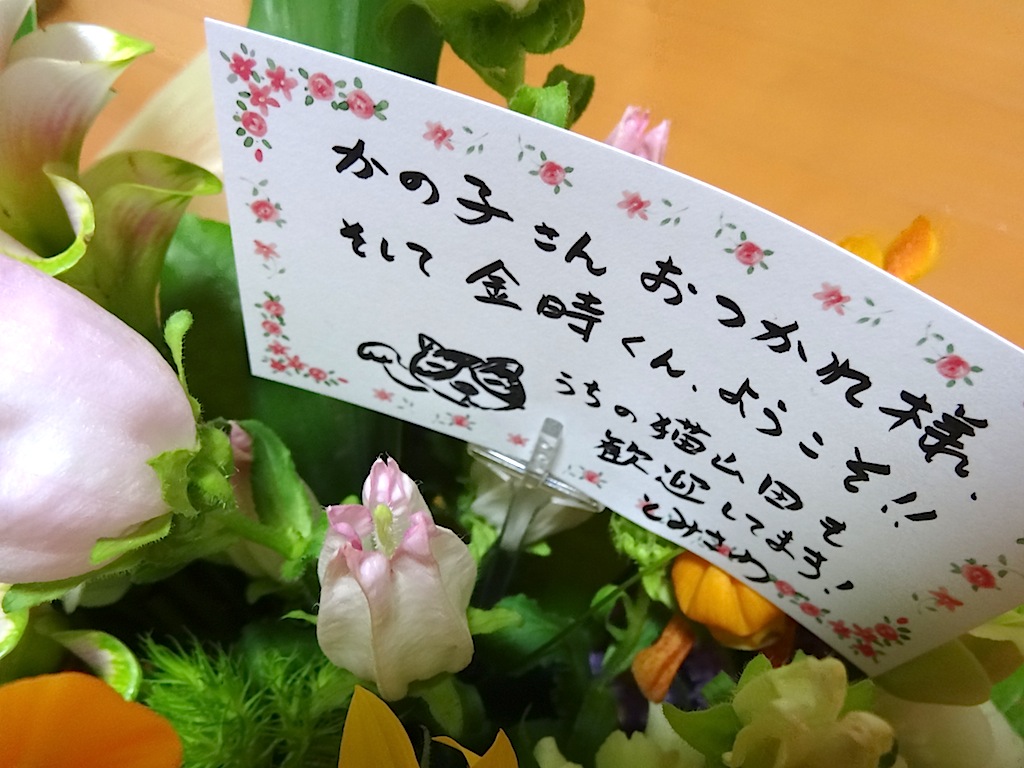 かの子さん おつかれ様、
そして 金時くん、ようこそ!!
うちの猫山田も
歓迎してます!